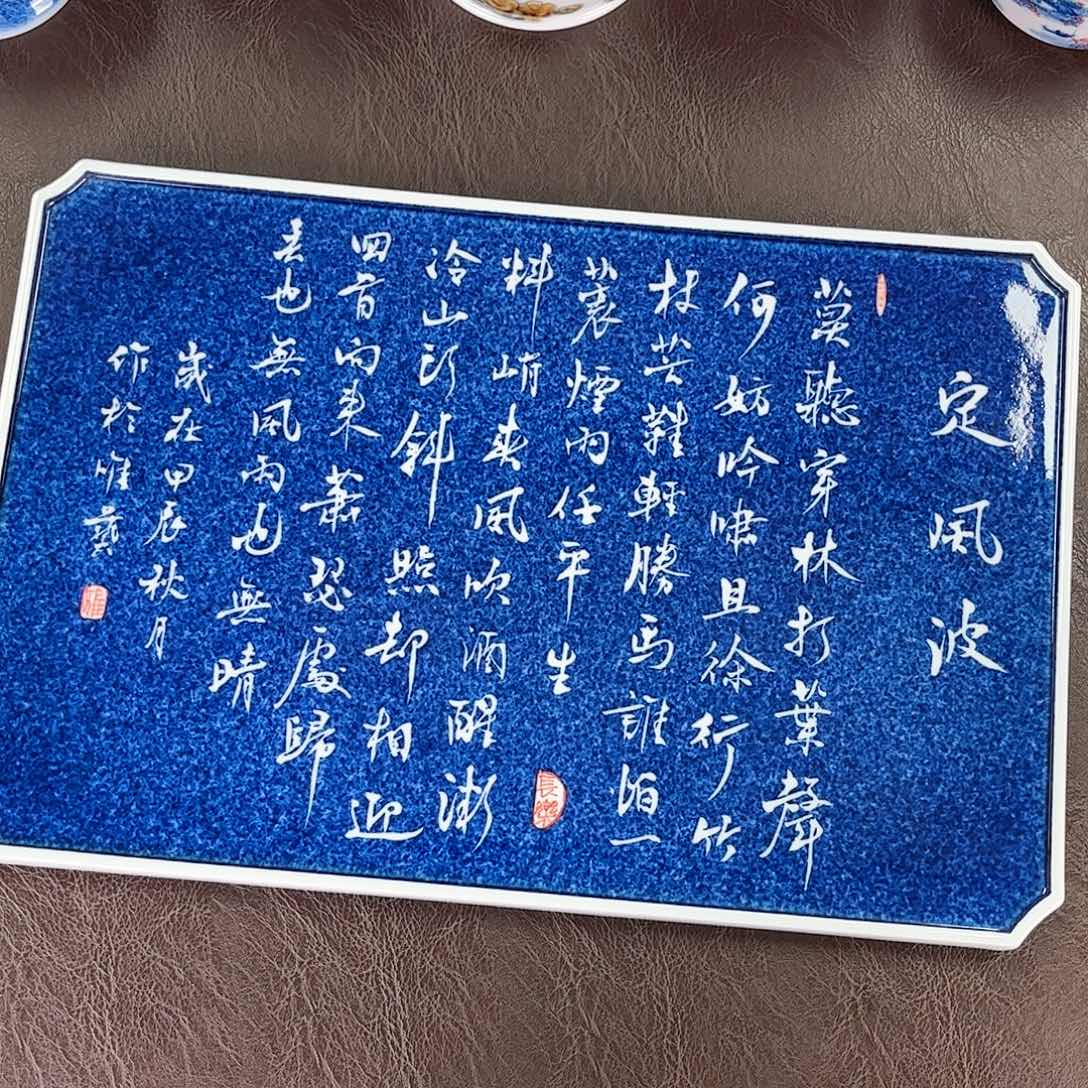 定風波
莫聽穿林打葉聲
何妨吟嘯且徐行竹
杖芒鞋輕勝馬誰怕一
蓑煙雨任平生
長樂
料峭春風吹酒醒漸
冷山頭斜照却相迎
回首向來蕭瑟處歸
去也無風雨也無晴
歲在甲辰秋月
作於唯